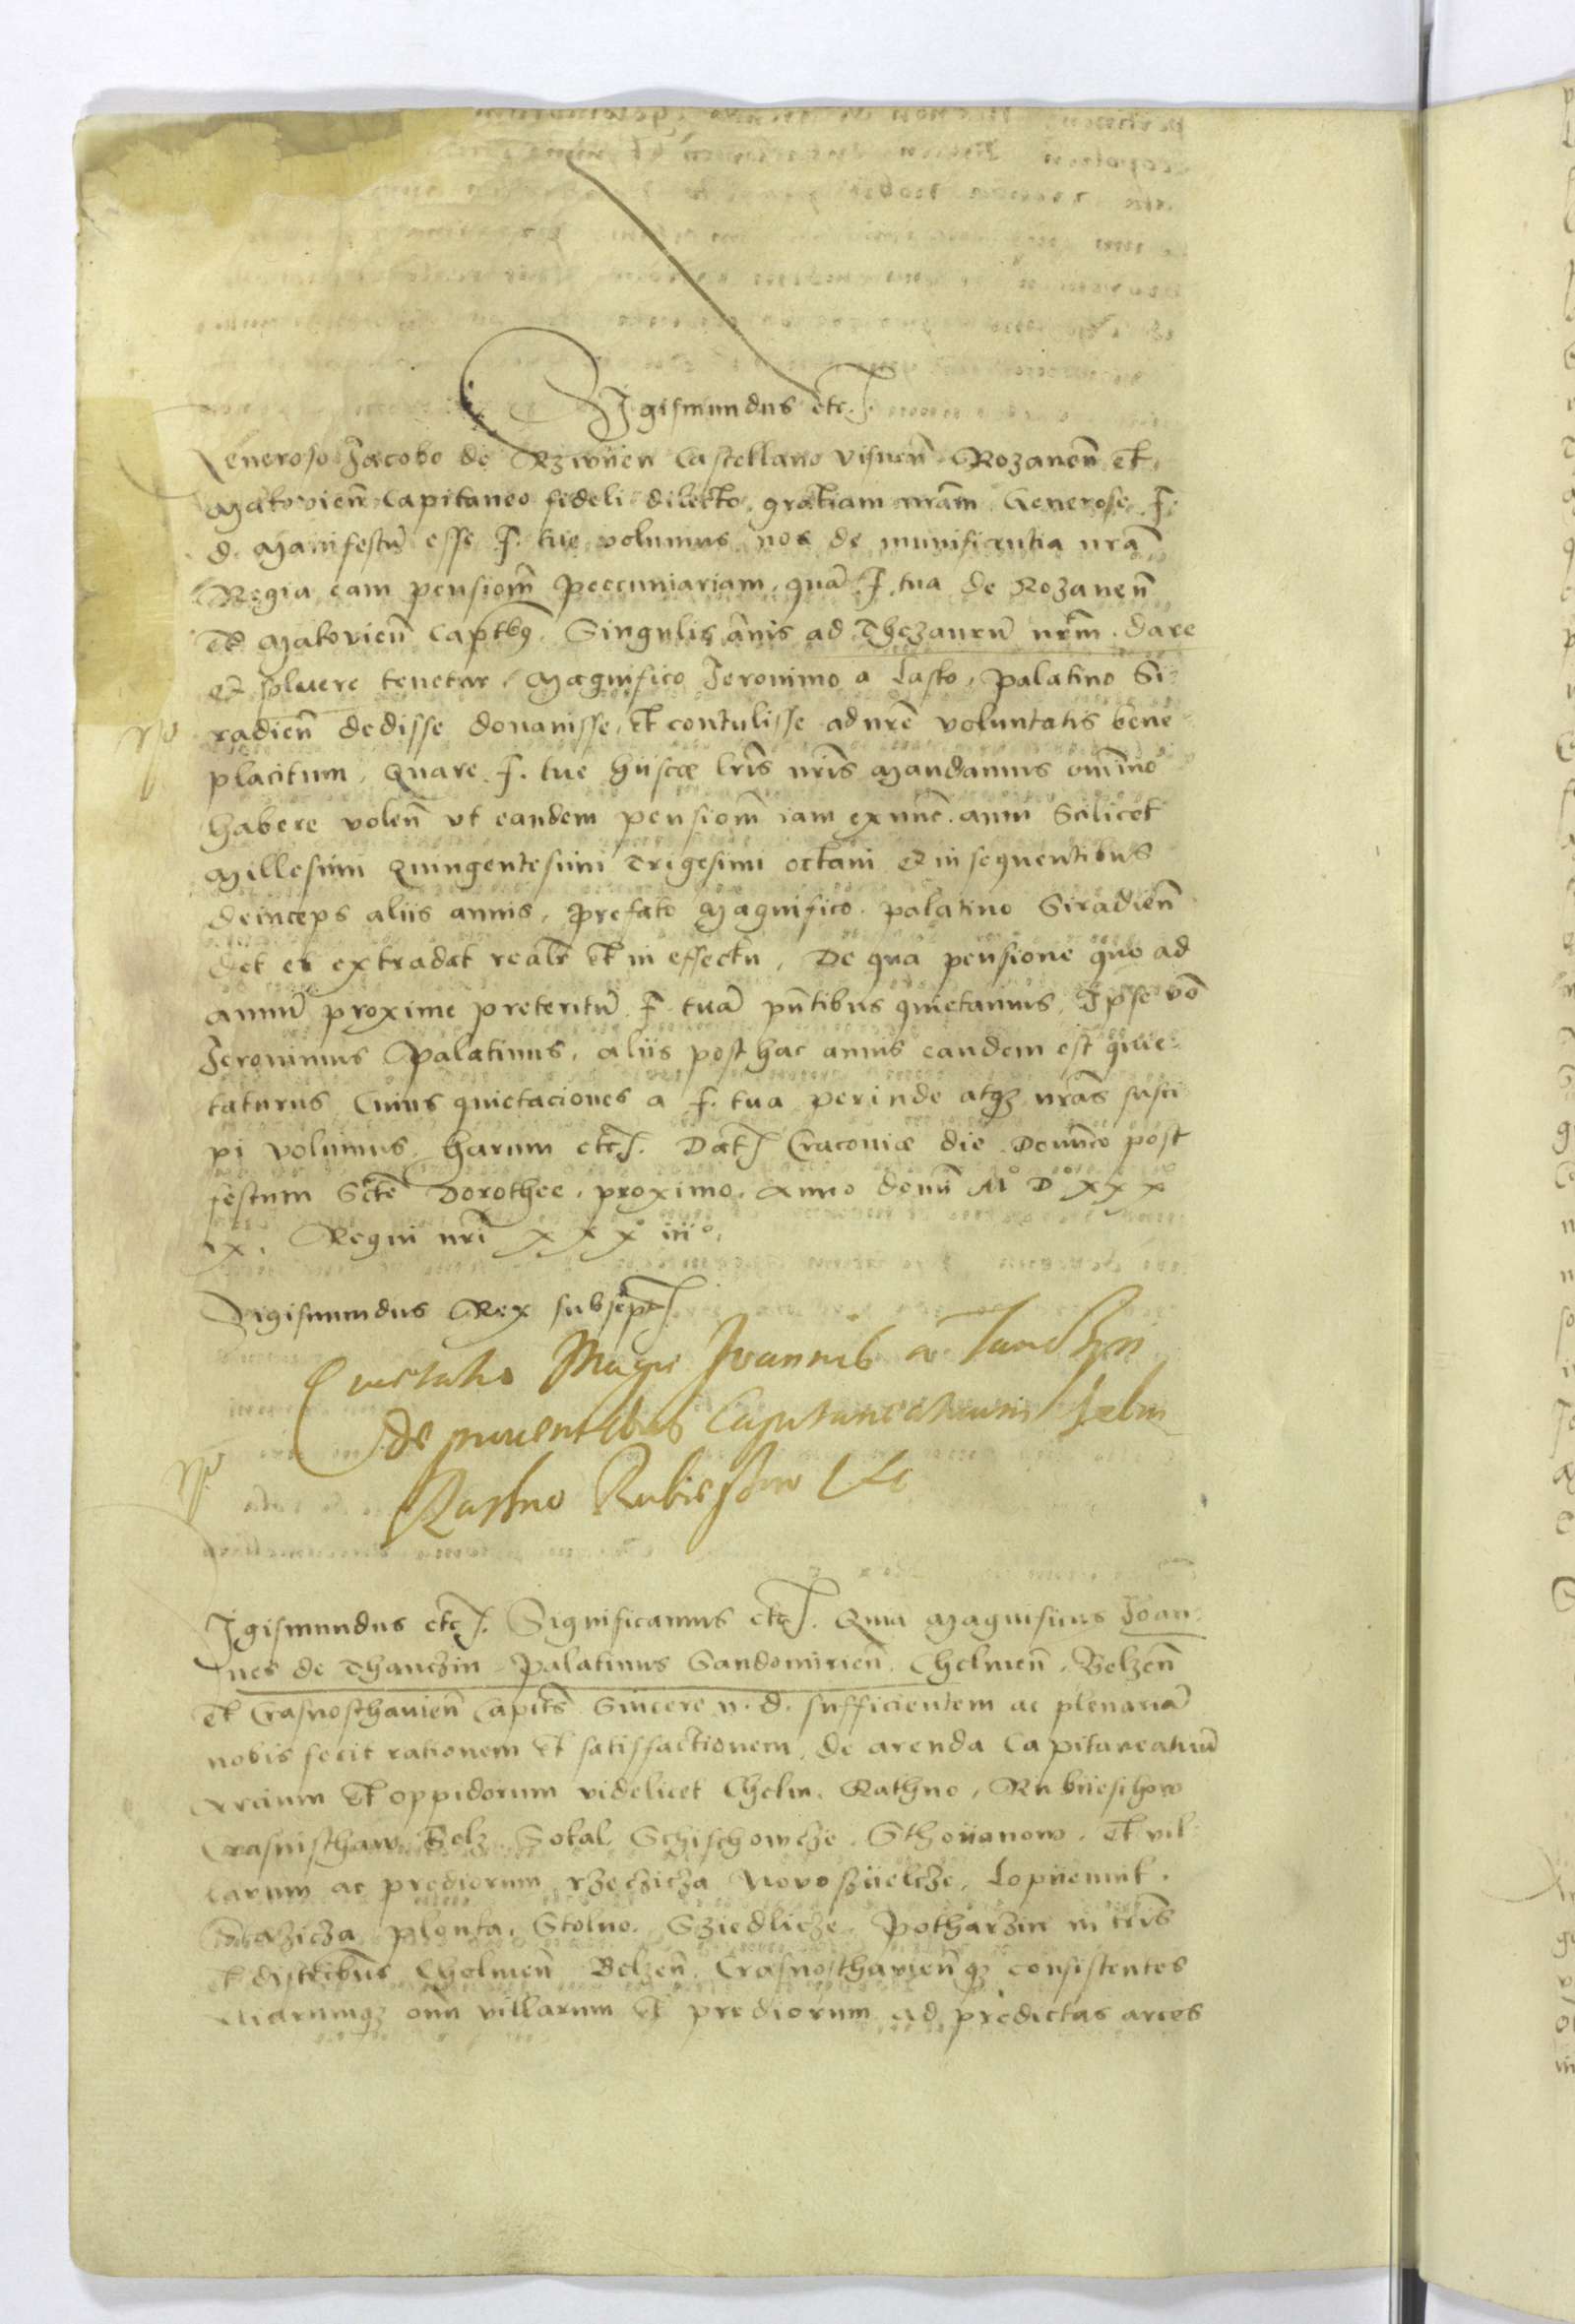 Sigismundus etc.
Generoso Jacobo de Rzwÿen Castellano Visnen̄. Rozanen̄ et
Makovien̄ Capitaneo fideli dilecto, gratiam nr̄am. Generose f.
d. Manifestū esse f. tue volumus, nos de munificentia nrā
Regia eam pensiom̄ peccuniariam, quā f. tua de Rozanen̄
Et Makovien̄ Captbꝯ. Singulis ānis ad Thezaurū nrm̄. dare
et soluere tenetur, Magnifico Jeronimo a Lasko, palatino Si-
radien̄ dedisse donauisse, et contulisse ad nrē voluntatis bene
placitum, Quare f. tue hijsce lrīs nrīs Mandamus omīno
habere volen̄ ut eandem pensiom̄ iam exnunc. anni Scilicet
Millesimi Quingentesimi Trigesimi octaui et insequentibus
deinceps aliis annis, prefato Magnifico palatino Siradien̄
det et extradat realr̄ et in effectu, De qua pensione quo ad
annū proxime preteritū f. tuā pn̄tibus quietamus, Ipse vō
Jeronimus Palatinus, aliis post hac annis eandem est quie-
taturus Cuius quietaciones a f. tua perinde atqꝫ nrās susci
pi volumus. harum etc. Dat Cracouiæ die Domīco post
festum Scte Dorothee, proximo, Anno domī M° D° xxx
ix. Regni nrī xxx° iii°.
Sigismundus Rex subscpt
Quietatio Magci Joannis a Tanczin
de prouentibus Capitaneatuum Helm
Rathno Rubieschow etc
Sigismundus etc. Significamus etc. Quia Magnificus Joan-
nes de Thanczin Palatinus Sandomirien̄. Chelmen̄. Belzen̄
et Crasnosthauien̄ Capits Sincere n. d. sufficientem ac plenariā
nobis fecit rationem et satisfactionem, de arenda Capitaneatuū
Arcium et oppidorum videlicet Chelm, Rathno, Rubÿeschow
Crasnisthaw, Belz, Sokal, Sczischowcze, Sthoÿanow, et vil-
larum ac prediorum, rzeczicza Novoszÿelcze, Lopÿennik.
plonka, Stolno, Sziedlicze, Potharzin in trīs
et districtbus Chelmen̄ Belzen̄. Crasnosthavien̄qꝫ consistentes
Aliarumqꝫ omī villarum et prediorum ad predictas arces